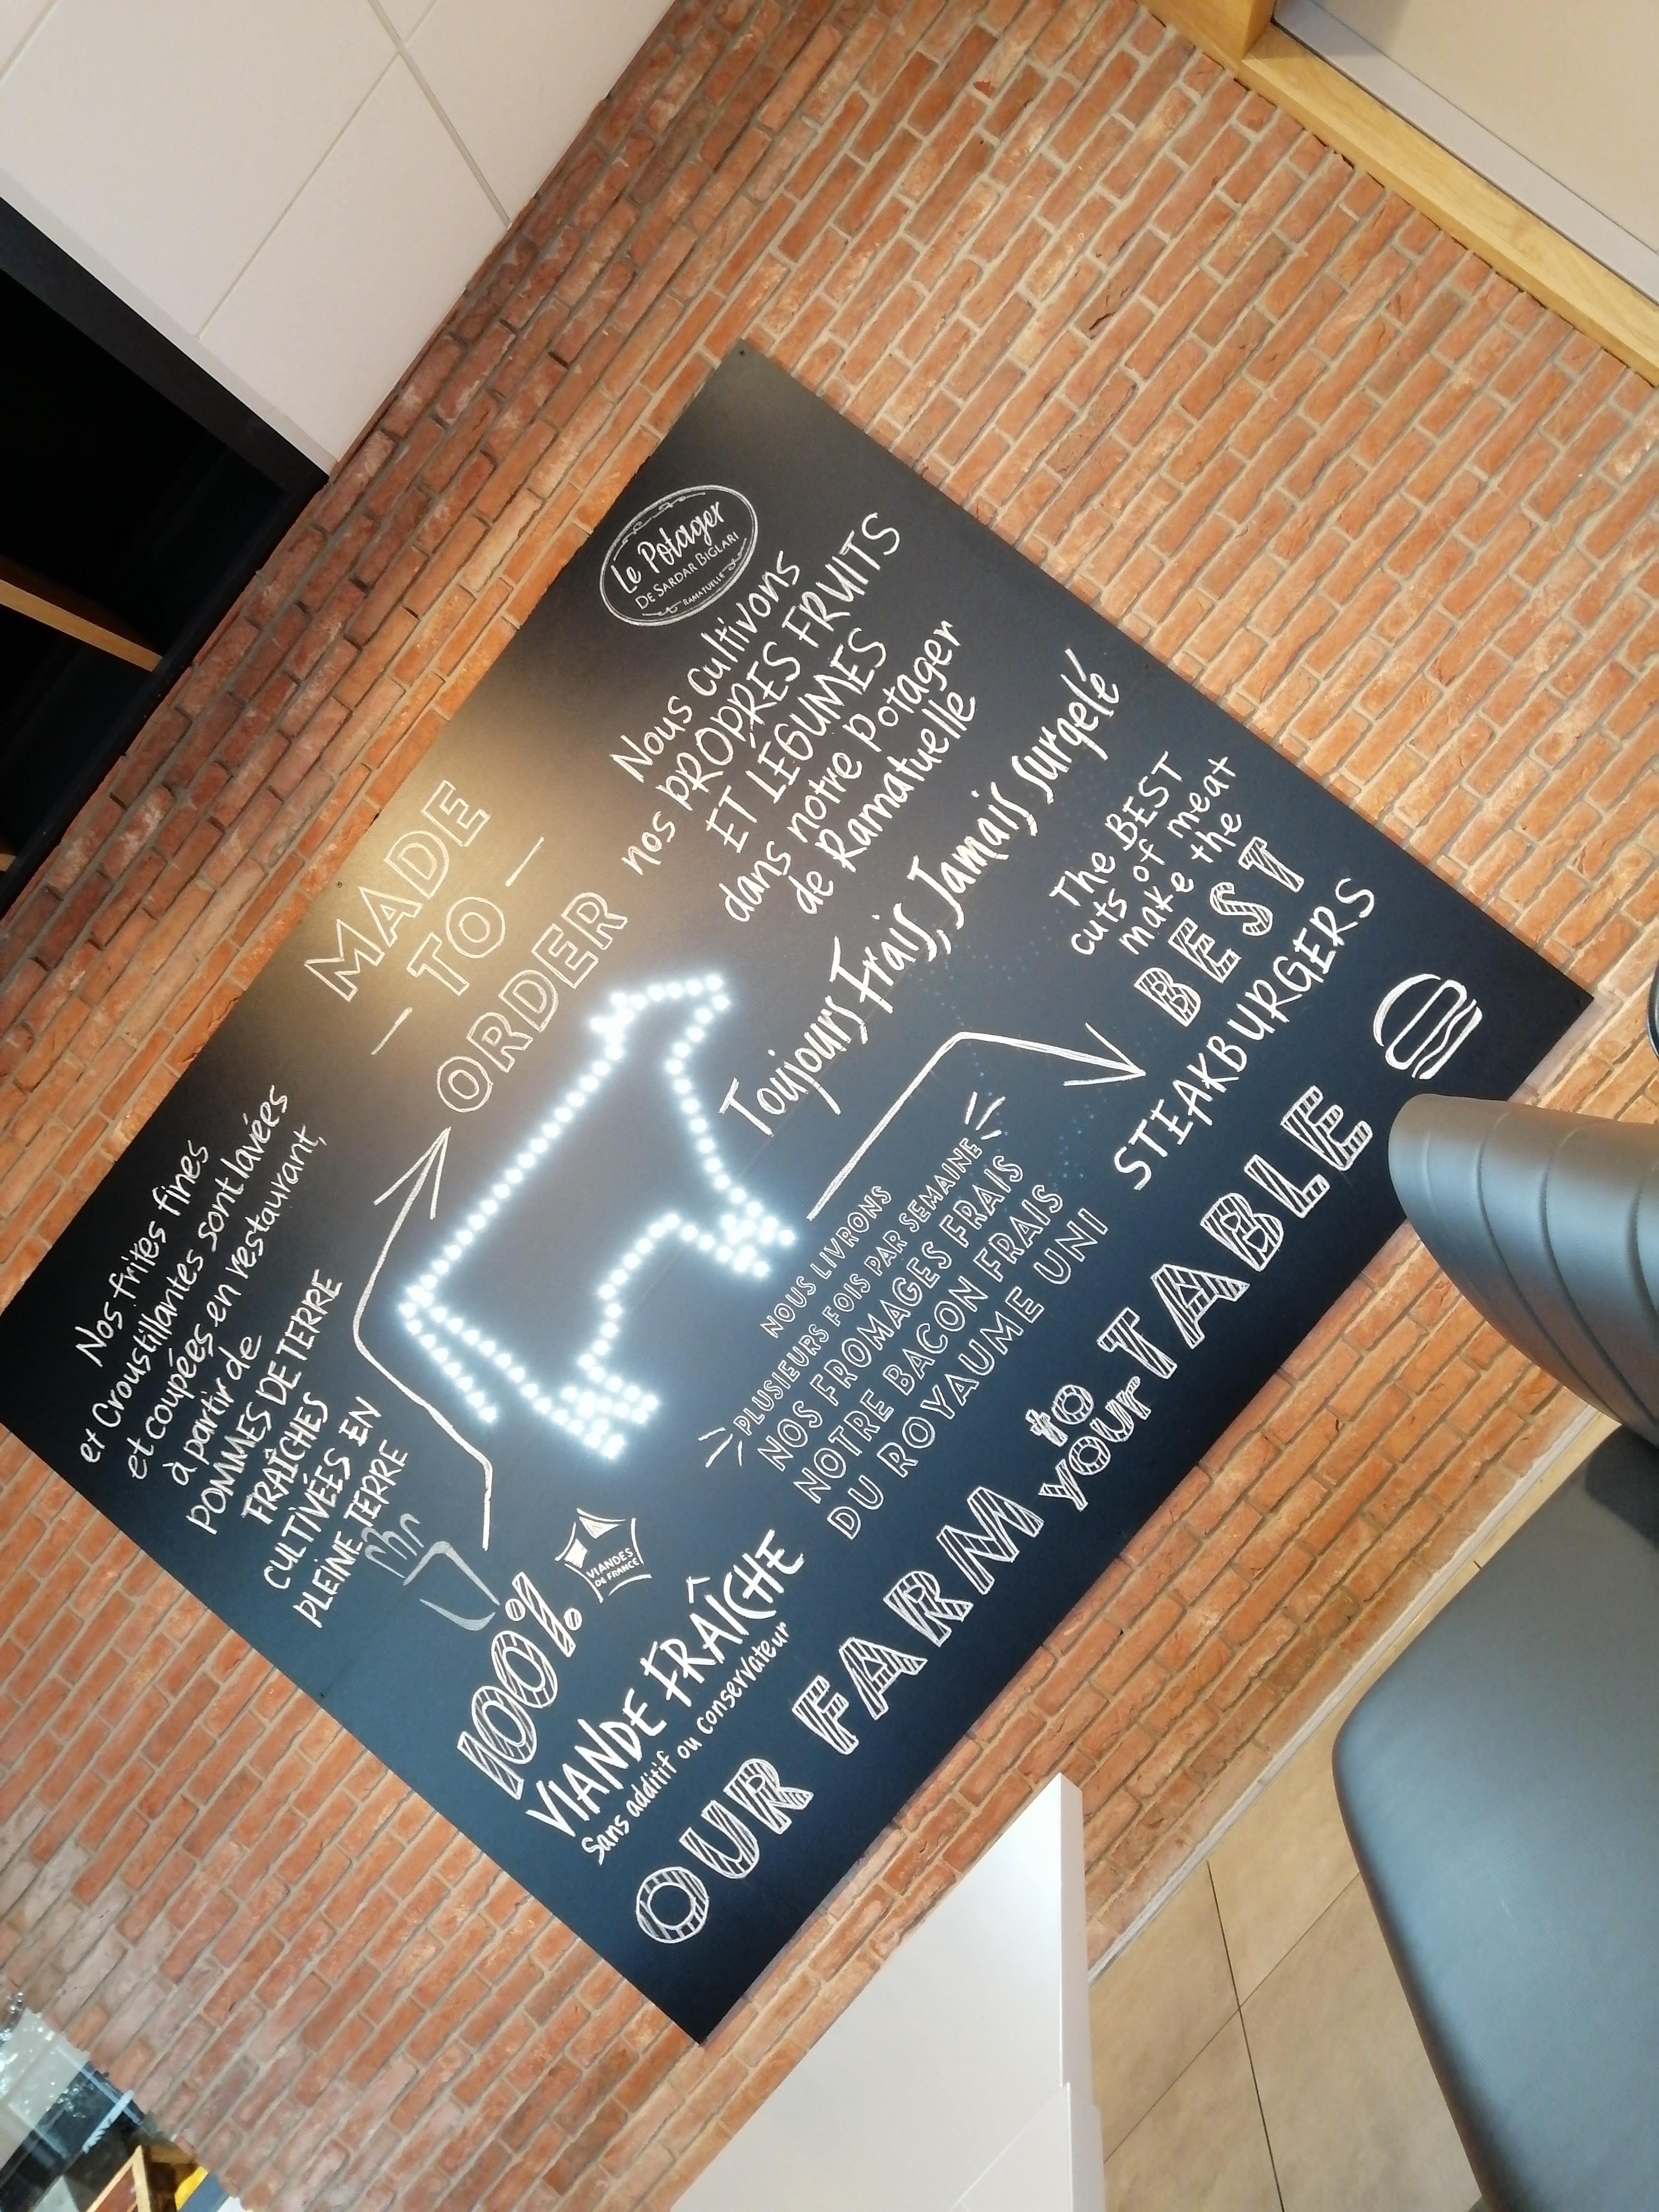 Nos frites fines
et Croustillantes sont lavées
et coupées en restaurant,
à partir de
POMMES DE TERRE
FRAÎCHES
CULTIVÉES EN
PLEINE TERRE
MADE
TO
ORDER
Le Potager
DE SARDAR BIGLARI
RAMATUELLE
Nous cultivons
nos PROPRES FRUITS
ET LÉGUMES
dans notre potager
de Ramatuelle
Toujours Frais, Jamais surgelé
100%
VIANDES
DE FRANCE
VIANDE FRAÎCHE
Sans additif ou conservateur
NOUS LIVRONS
PLUSIEURS FOIS PAR SEMAINE
NOS FROMAGES FRAIS
NOTRE BACON FRAIS
DU ROYAUME UNI
The BEST
cuts of meat
make the
BEST
STEAKBURGERS
OUR FARM to your TABLE